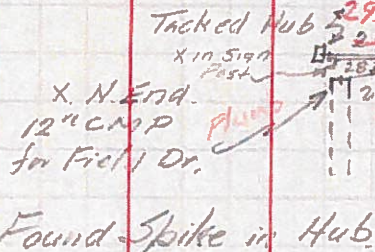 Tacked Hub
29
2
X in Sign
Post
X. N. End.
12" CMP
for Field Dr.
Plumb
Found Spike in Hub